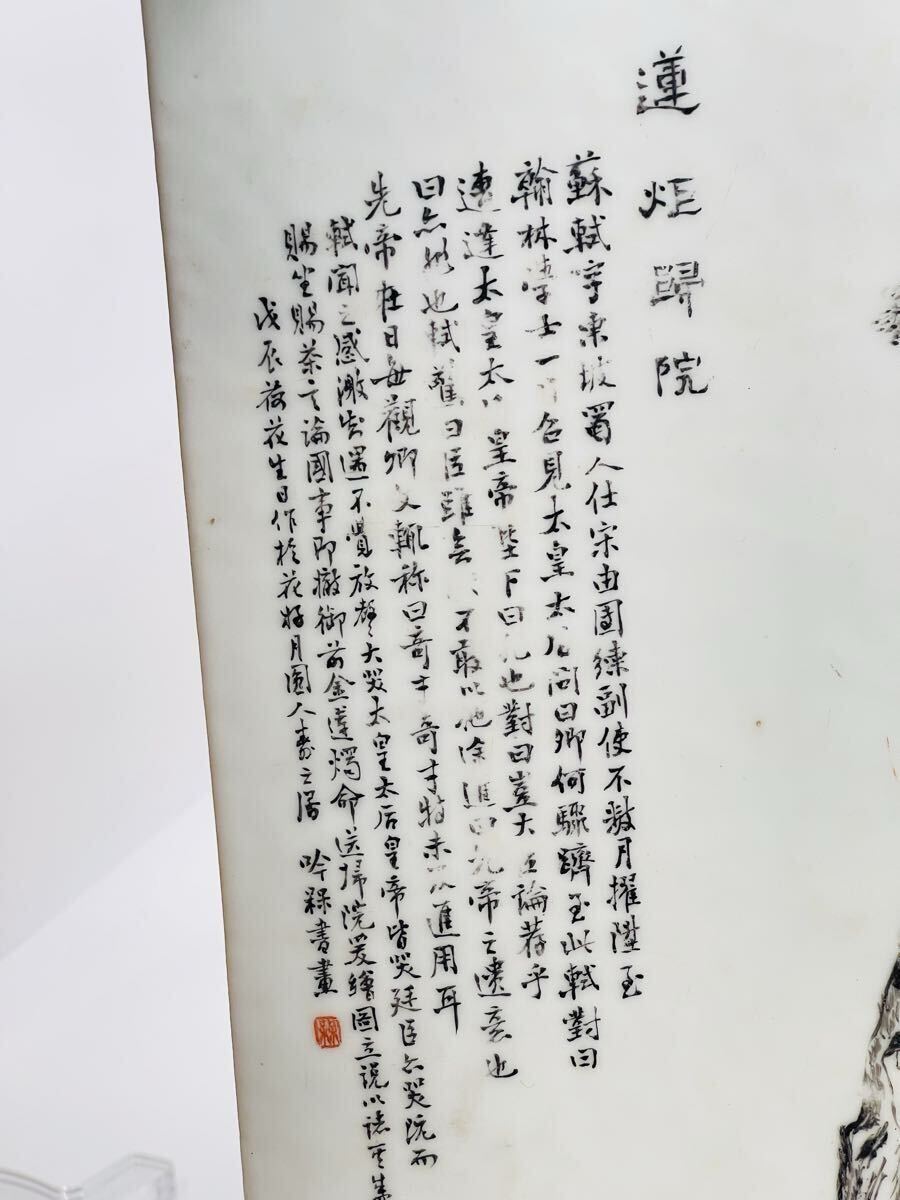 蓮炬歸院
蘇軾字東坡蜀人仕宋由團練副使不數月擢陞至
翰林學士一召見太皇太后問曰卿何驟躋至此軾對曰
遭逢太皇太皇帝陛下曰非也對曰豈大臣論荐乎
曰亦非也軾驚曰臣雖無不敢以他途進曰先帝之遺意也
先帝在日每觀卿文輒称曰奇才奇才特未及進用耳
軾聞之感激知遇不覺放聲大哭太皇太后皇帝皆哭廷臣亦哭既而
賜坐賜茶言論國事即撤御前金蓮燭命送歸院爰繪圖立說以誌其盛
戊辰荷花生日作於花好月圓人壽之居 吟槑書畫